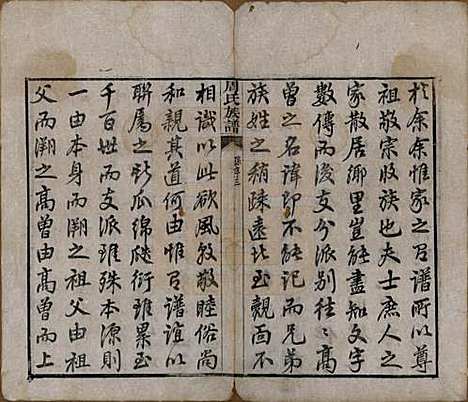 於余余惟家之有譜所以尊
祖敬宗收族也夫士庶人之
家散居鄉里豈能盡知文字
數傳而後支分派別往往高
曾之名諱即不能記而兄弟
族姓之稍疎遠此至親面不
周氏族譜
相識以此欲風敦敬睦俗尚
和親其道何由惟有譜誼以
聯屬之於瓜綿瓞衍雖累至
千百世而支派雖殊本源則
一由本身而溯之祖父由祖
父而溯之高曾由高曾而上